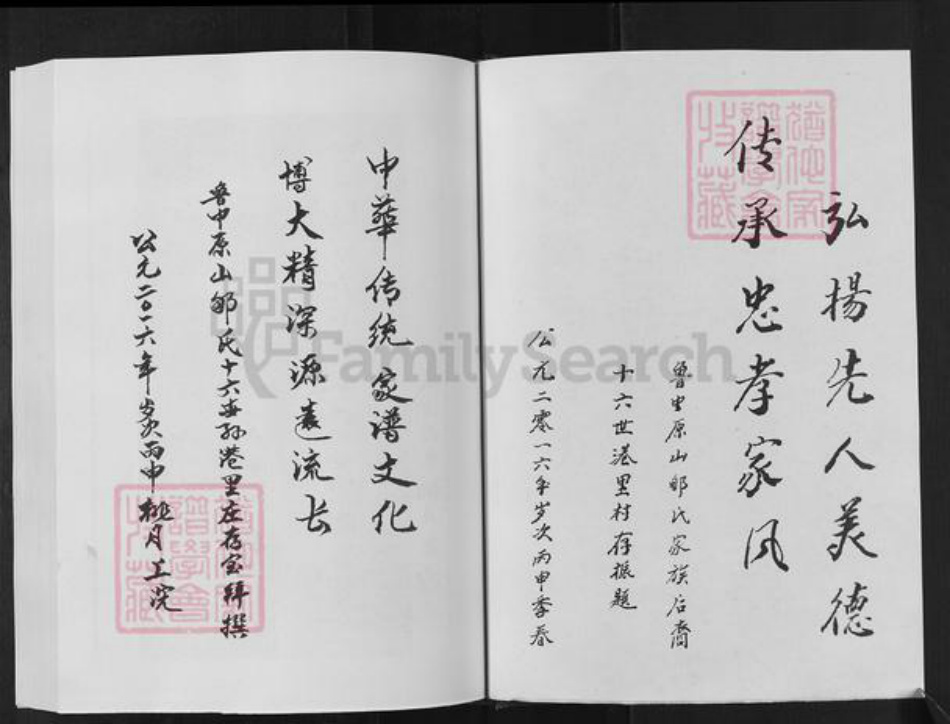 弘揚先人美德
传承忠孝家风
鲁中原山邹氏家族后裔
十六世港里村存振題
公元二零一六年岁次丙申季春
中華传统家谱文化
博大精深源遠流长
鲁中原山邹氏十六世孙港里庄存宝拜撰
公元二0一六年岁次丙申桃月上浣
FamilySearch